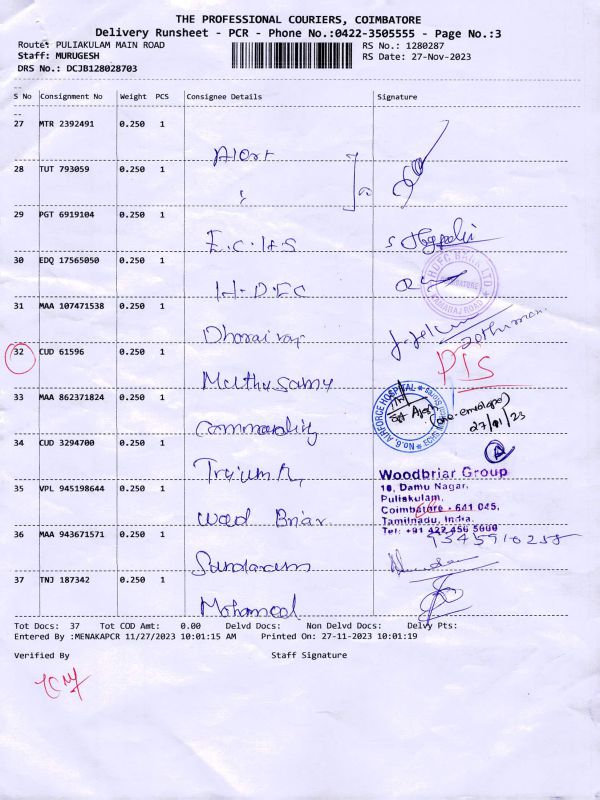 THE PROFESSIONAL COURIERS, COIMBATORE
Delivery Runsheet - PCR - Phone No.:0422-3505555 - Page No.:3
Route: PULIAKULAM MAIN ROAD RS No.: 1280287
Staff: MURUGESH RS Date: 27-Nov-2023
DRS No.: DCJB128028703
S No Consignment No Weight PCS Consignee Details Signature
27 MTR 2392491 0.250 1 Alert
28 TUT 793059 0.250 1 "
29 PGT 6919104 0.250 1 E.C.H.S
30 EDQ 17565050 0.250 1 H-DFC
HDFC BANK LTD
31 MAA 107471538 0.250 1 Dhorairaj
32 CUD 61596 0.250 1 Muthusamy
33 MAA 862371824 0.250 1 Commanding
No.6, AIRFORCE HOSPITAL
(one-envelope)
27/11/23
34 CUD 3294700 0.250 1
35 VPL 945198644 0.250 1 Wood Briar
Woodbriar Group
10, Damu Nagar,
Puliakulam,
Coimbatore - 641 045,
Tamilnadu, India.
Tel: +91 422 456 5600
36 MAA 943671571 0.250 1 Sundaram
37 TNJ 187342 0.250 1 Mohamed
Tot Docs: 37 Tot COD Amt: 0.00 Delvd Docs: Non Delvd Docs: Delvy Pts:
Entered By :MENAKAPCR 11/27/2023 10:01:15 AM Printed On: 27-11-2023 10:01:19
Verified By Staff Signature